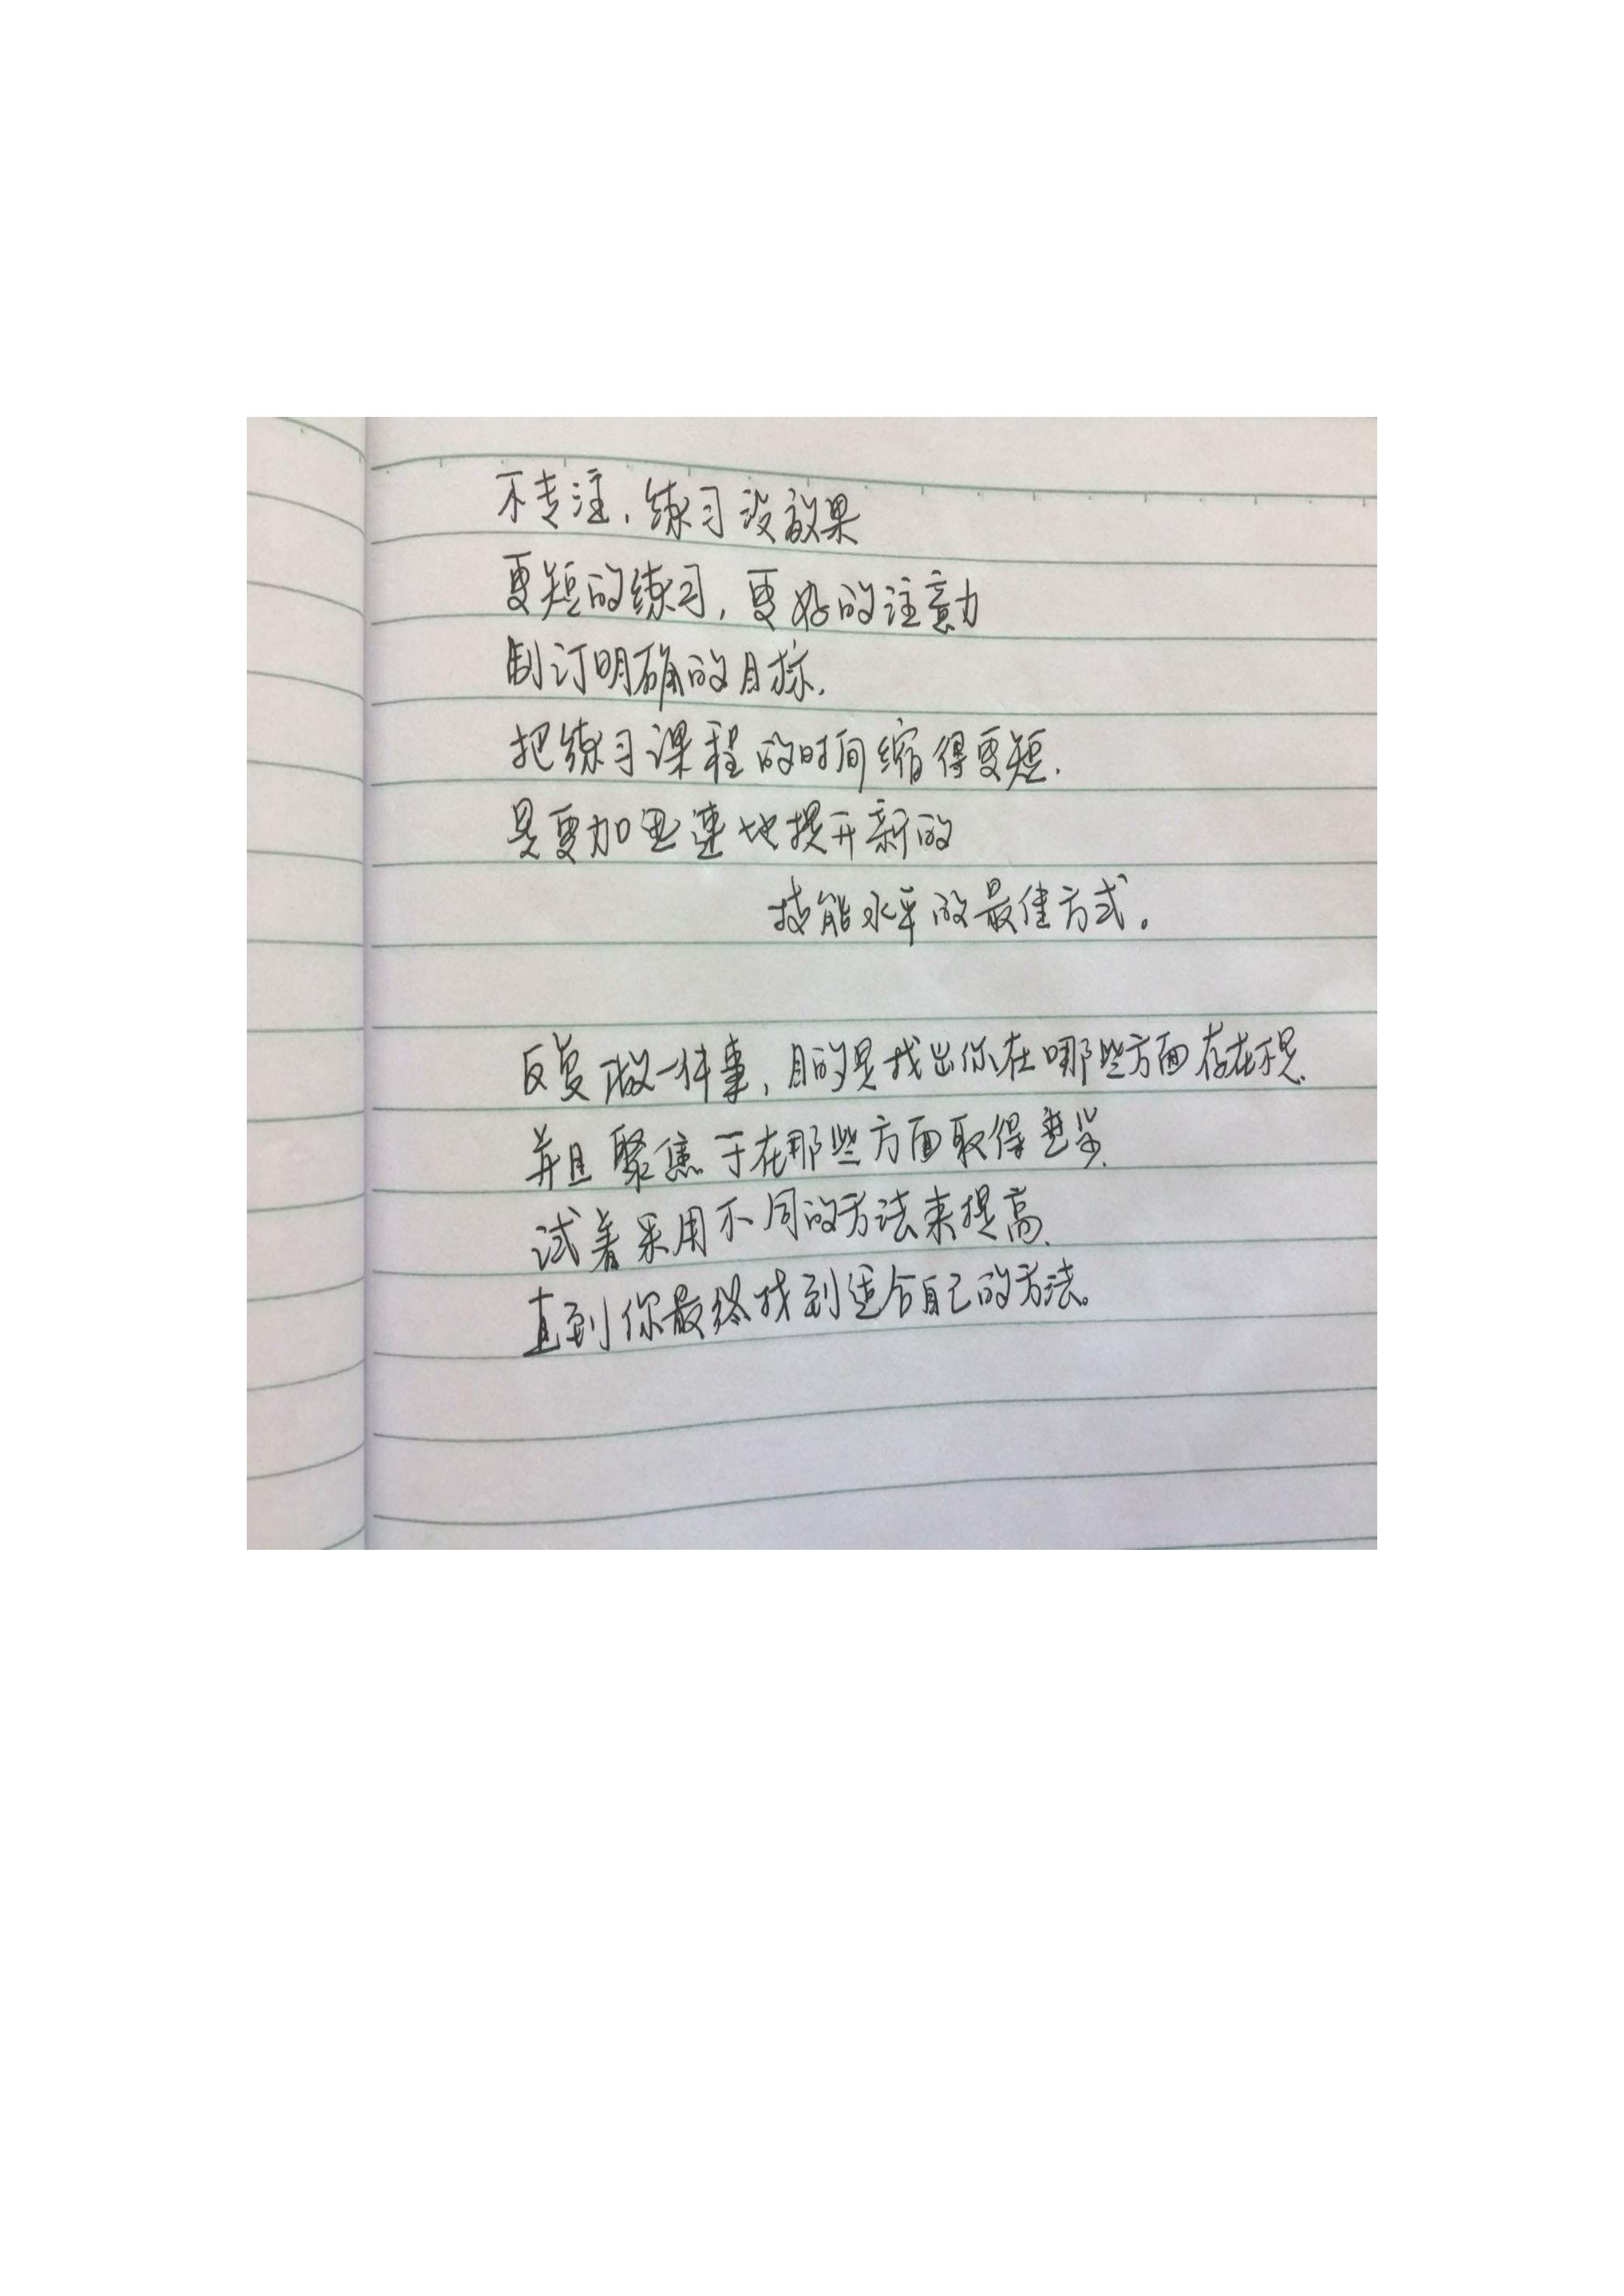 不专注，练习没效果
更短的练习，更好的注意力
制订明确的目标，
把练习课程的时间缩得更短，
是更加迅速地提升新的
技能水平的最佳方式。
反复做一件事，目的是找出你在哪些方面存在不足，
并且聚焦于在那些方面取得进步，
试着采用不同的方法来提高，
直到你最终找到适合自己的方法。